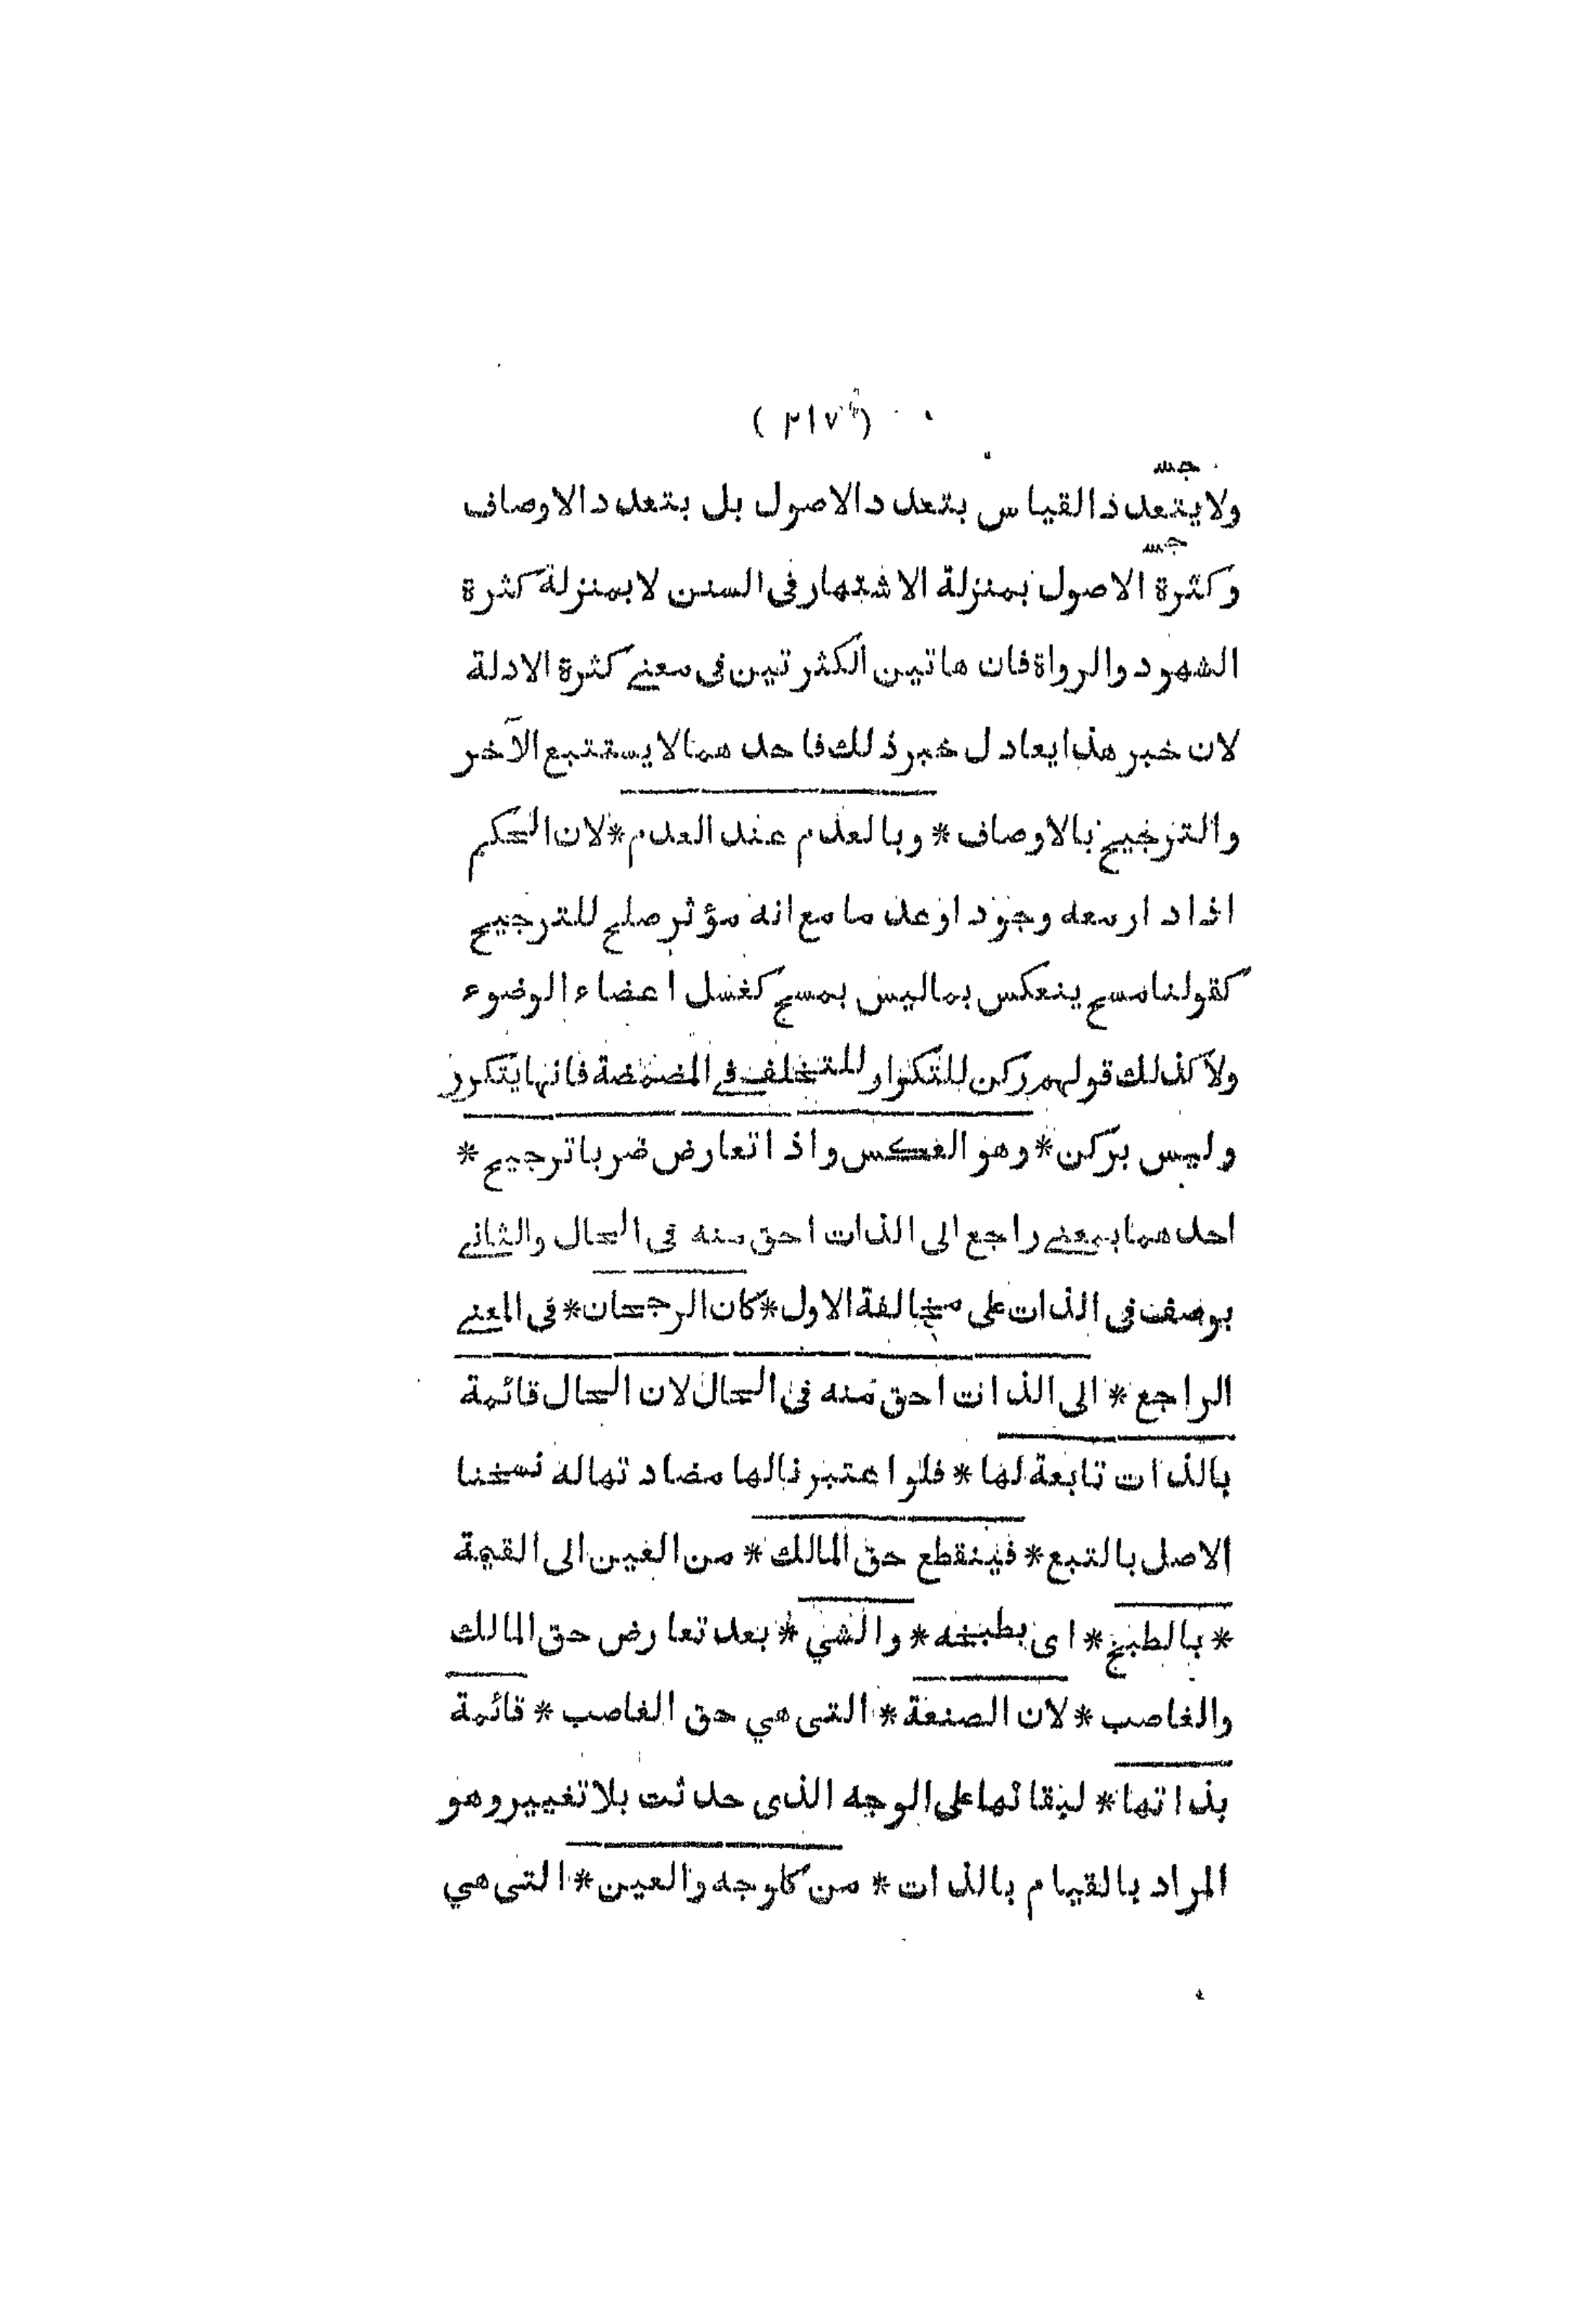 ( ٢١٧ )
ولا يتعدد القياس بتعدد الاصول بل بتعدد الاوصاف
وكثرة الاصول بمنزلة الاشتهار فى السنن لا بمنزلة كثرة
الشهود والرواة فان هاتين الكثرتين فى معنے كثرة الادلة
لان خبر هذا يعادل خبر ذلك فاحدهما لا يستتبع الآخر
والترجيح بالاوصاف * وبالعدم عند العدم * لان الحكم
اذا دار معه وجودا وعدما مع انه مؤثر صلح للترجيح
كقولنا مسح ينعكس بما ليس بمسح كغسل اعضاء الوضوء
ولا كذلك قولهم ركن للتكرار للتخلف فے المضمضة فانها يتكرر
وليس بركن * وهو العكس واذا تعارض ضربا ترجيح *
احدهما بمعنے راجع الى الذات احق منه فى الحال والثانے
بوصف فى الذات على مخالفة الاول * كان الرجحان * فى المعنے
الراجع * الى الذات احق منه فى الحال لان الحال قائمة
بالذات تابعة لها * فلو اعتبرنا لها مضادتها له نسخنا
الاصل بالتبع * فينقطع حق المالك * من العين الى القيمة
* بالطبخ * اى بطبخه * والشي * بعد تعارض حق المالك
والغاصب * لان الصنعة * التى هي حق الغاصب * قائمة
بذاتها * لبقائها على الوجه الذى حدثت بلا تغيير وهو
المراد بالقيام بالذات * من كل وجه والعين * التى هي